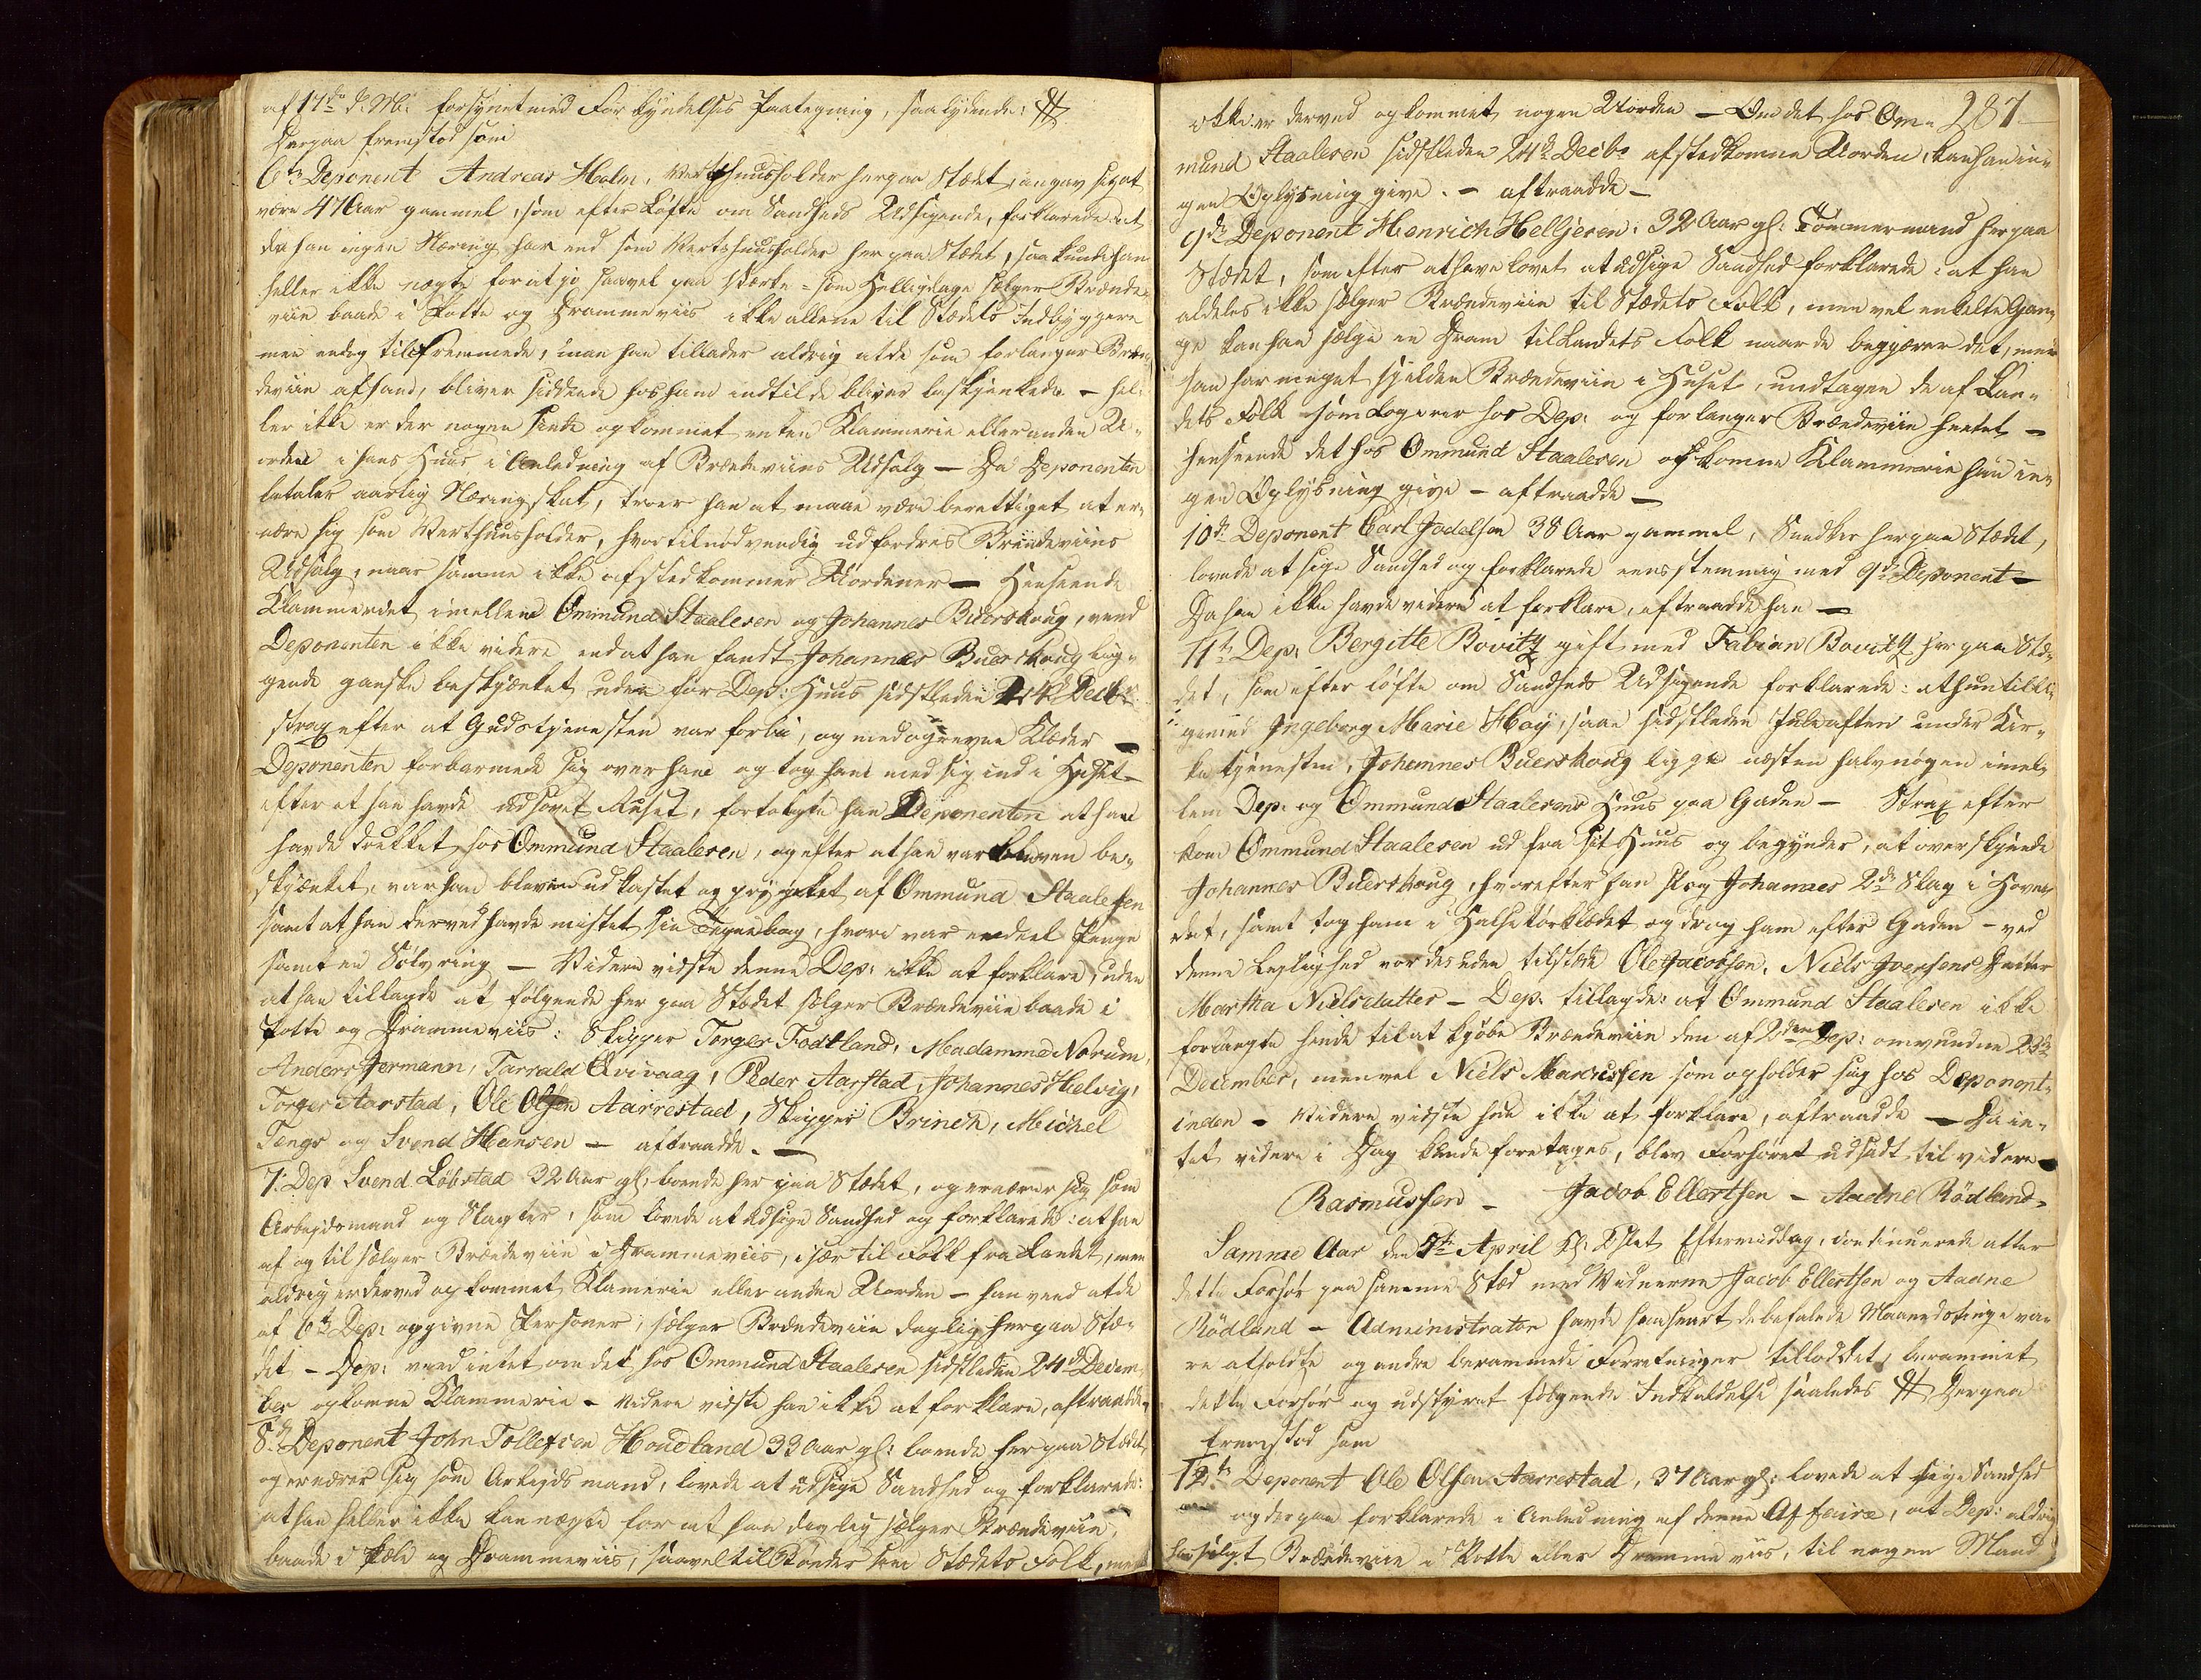 af 17de d: M: forsynet med Forkyndelses Paategning, saalydende: #
Derpaa fremstod som
6te Deponent Andreas Holm, Vertshuusholder herpaa Stædet, angav sig at
være 47 Aar gammel, som efter Løfte om Sandheds Udsigende, forklarede: at
da han ingen Næring har end som Vertshuusholder her paa Stædet, saa kunde han
heller ikke nægte for at jo saavel paa Søkne- som Helligdage sælger Brænde-
viin baade i Potte og Drammeviis ikke allene til Stædets Indbyggere
men endog til Fremmede, men han tillader aldrig at de som forlanger Bræn-
deviin af ham, bliver siddende hos ham indtil de bliver beskjenkede. – hel-
ler ikke er der nogen sinde opkommet enten Klammerie eller anden U-
orden i hans Huus i Anledning af Brændeviins Udsalg – Da Deponenten
betaler aarlig Næringskat, troer han at maae være berettiget at er-
nære sig som Verthuusholder, hvortil nødvendig udfordres Brændeviins
Udsalg, naar samme ikke afstedkommer Uordener – Henseende
Klammeriet imellem Ommund Staalesen og Johannes Buerskoug, veed
Deponenten ikke videre end at han fandt Johannes Buerskoug lig-
gende ganske beskjænket uden for Dep: Huus sidstleden 24de Decbr
strax efter at Gudstjenesten var forbi, og med oprevne Klæder –
Deponenten forbarmede sig over ham og tog ham med sig ind i Huset –
efter at han havde udsovet Ruset, fortalgte han Deponenten at han
havde drukket hos Ommund Staalesen, og efter at han var bleven be-
skjænket, var han bleven udkastet og pryglet af Ommund Staalesen
samt at han derved havde mistet sin Tegnebog, hvori var endeel Penge
samt en Sølvring – Videre vidste denne Dep: ikke at forklare, uden
at han tillagde at følgende her paa Stædet sælger Brændeviin baade i
Potte og Drammeviis: Skipper Torger Fodtland, Madamme Norum,
Anders Jermann, Tarrald Qvivaag, Peder Aarstad, Johannes Helvig,
Torger Aarstad, Ole Olsen Aarrestad, Skipper Brinch, Michel
Tengs og Svend Hansen – aftraadde. –
7. Dep Svend Løbstad 32 Aar gl: boende her paa Stædet, og ernærer sig som
Arbejdsmand og Slagter, som lovede at udsige Sandhed og forklarede: at han
af og til sælger Brændeviin i Drammeviis, især til Folk fra Landet, men
aldrig er derved opkommet Klamerie eller anden Uorden – han veed at de
af 6te Dep: opgivne Personer, sælger Brændeviin daglig herpaa Stæ-
det – Dep: veed intet om det hos Ommund Staalesen sidstleden 24de Decem-
ber opkomne Klammerie – Videre vidste han ikke at forklare, aftraadde.
8de Deponent John Tollefsen Houdland 33 Aar gl: boende herpaa Stædet
og ernærer sig som Arbejdsmand, lovede at udsige Sandhed og forklarede:
at han heller ikke kan nægte for at han daglig sælger Brændeviin,
baade i Pæle og Drammeviis, saavel til Bønder som Stædets Folk, men
287
ikke er derved opkommet nogen Uorden – Om det hos Om-
mund Staalesen sidstleden 24de Decbr afstedkomne Uorden, kan han in-
gen Oplysning give. – aftraadde –
9de Deponent Henrich Helljesen, 32 Aar gl: Tømmermand herpaa
Stædet, som efter at have lovet at udsige Sandhed forklarede: at han
aldeles ikke sælger Brændeviin til Stædets Folk, men vel enkelte Gan-
ge kan han sælge en Dram til Landets Folk naar de begjærer det, men
han har meget sjelden Brændeviin i Huset, undtagen de af Lan-
dets Folk som logerer hos Dep: og forlanger Brændeviin hentet –
henseende det hos Ommund Staalesen opkomne Klammerie han in-
gen Oplysning give – aftraadde –
10de Deponent Carl Jodelsen 38 Aar gammel, Snedker herpaa Stædet,
lovede at sige Sandhed og forklarede eensstemmig med 9de Deponent –
Da han ikke havde videre at forklare, aftraadde han –
11te Dep: Bergitte Bovitz gift med Fabian Bovitz her paa Stæ-
det, som efter Løfte om Sandheds Udsigende forklarede: at hun tilli-
gemed Ingeborg Marie Høy, saae sidstleden Juleaften under Kir-
ketjenesten, Johannes Buerskoug ligge næsten halvnøgen imel-
lem Dep: og Ommund Staalesens Huus paa Gaden – Strax efter
kom Ommund Staalesen ud fra sit Huus og begynder, at overskjende
Johannes Buerskoug, hvorefter han slog Johannes 2de Slag i Hove-
det, samt tog ham i Halstørklædet og drog ham efter Gaden – ved
denne Leylighed var desuden tilstæde Ole Jacobsen, Niels Iversens Datter
Martha Nielsdatter – Dep: tillagde: at Ommund Staalesen ikke
forlangte hende til at kjøbe Brændeviin den af 2den Dep: omvundne 23de
December, men vel Niels Marcussen som opholder sig hos Deponent-
inden – Videre vidste hun ikke at forklare, aftraadde – Da in-
tet videre i Dag kunde foretages, blev Forhøret udsadt til videre –
Rasmussen – Jacob Ellertsen – Aadne Rödland –
Samme Aar den 5te April Kl: Slet Eftermiddag, continuerede atter
dette Forhør paa samme Stæd med Vidnerne Jacob Ellertsen og Aadne
Rödland – Administrator havde saasnart de befalede Maanedstinge va-
re afholdte og andre berammede Forretninger tilloddet, berammet
dette Forhør og udstyret følgende Indkaldelse saaledes # Derpaa
fremstod som
12te Deponent Ole Olsen Aarrestad, 37 Aar gl: lovede at sige Sandhed
og derpaa forklarede i Anledning af denne Affaire, at Dep: aldrig
har solgt Brændeviin i Potte eller Drammeviis, til nogen Mand